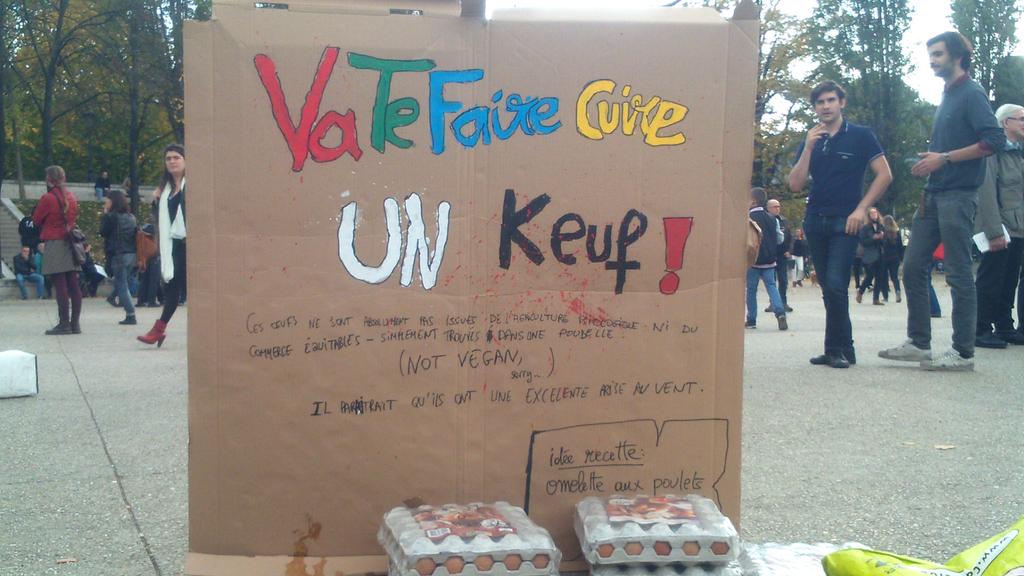 Va Te Faire Cuire
UN Keuf !
CES ŒUFS NE SONT ABSOLUMENT PAS ISSUES DE L'AGRICULTURE BIOLOGIQUE. NI DU
COMMERCE ÉQUITABLES - SIMPLEMENT TROUVÉS DANS UNE POUBELLE
(NOT VEGAN,
sorry... )
IL PARAITRAIT QU'ILS ONT UNE EXCELENTE PRISE AU VENT.
idée recette:
omelette aux poulets